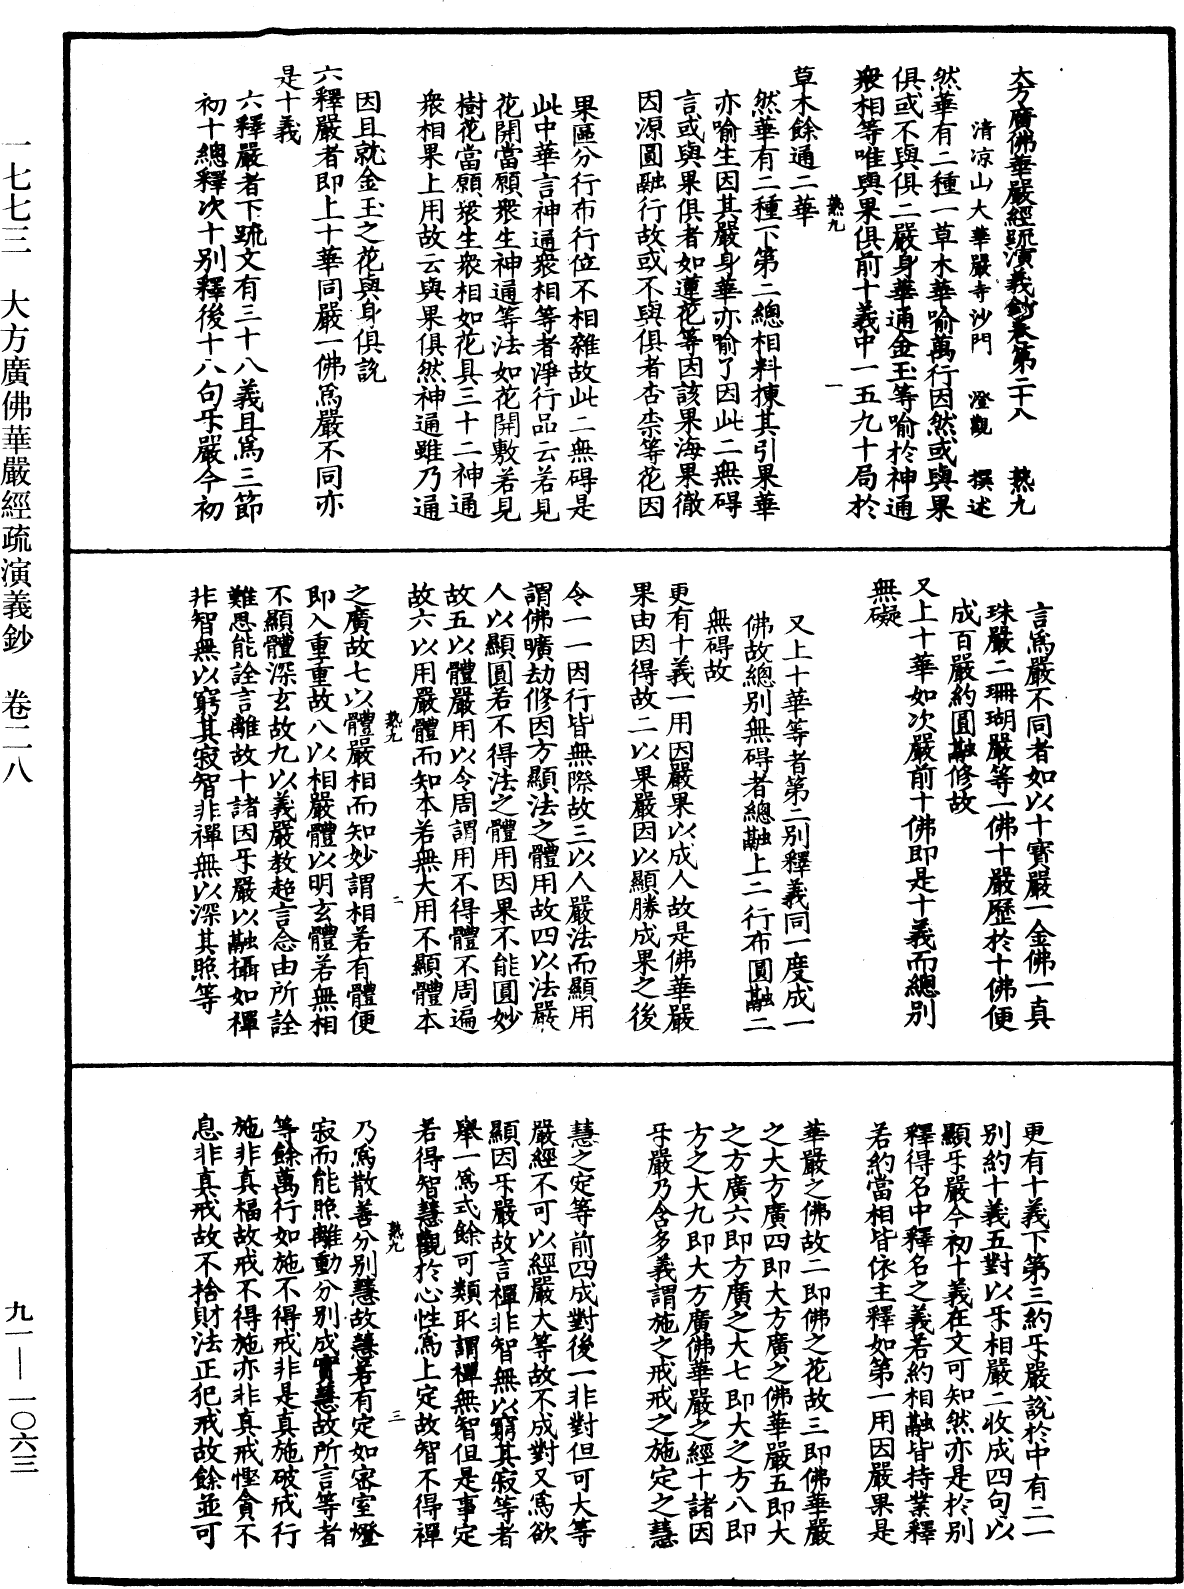 一七七三　大方廣佛華嚴經疏演義鈔　卷二八
九一—一〇六三
大方廣佛華嚴經疏演義鈔卷第二十八　熟九
清涼山大華嚴寺沙門　澄觀　撰述
然華有二種一草木華喻萬行因然或與果
俱或不與俱二嚴身華通金玉等喻於神通
衆相等唯與果俱前十義中一五九十局於
熟九　一
草木餘通二華
然華有二種下第二總相料揀其引果華
亦喻生因其嚴身華亦喻了因此二無碍
言或與果俱者如蓮花等因該果海果徹
因源圓融行故或不與俱者杏柰等花因
果區分行布行位不相雜故此二無碍是
此中華言神通衆相等者淨行品云若見
花開當願衆生神通等法如花開敷若見
樹花當願衆生衆相如花具三十二神通
衆相果上用故云與果俱然神通雖乃通
因且就金玉之花與身俱說
六釋嚴者即上十華同嚴一佛爲嚴不同亦
是十義
六釋嚴者下疏文有三十八義且爲三節
初十總釋次十別釋後十八句乐嚴今初
言爲嚴不同者如以十寶嚴一金佛一真
珠嚴二珊瑚嚴等一佛十嚴歷於十佛便
成百嚴約圓融修故
又上十華如次嚴前十佛即是十義而總別
無礙
又上十華等者第二別釋義同一度成一
佛故總別無碍者總融上二行布圓融二
無碍故
更有十義一用因嚴果以成人故是佛華嚴
果由因得故二以果嚴因以顯勝成果之後
令一一因行皆無際故三以人嚴法而顯用
謂佛曠劫修因方顯法之體用故四以法嚴
人以顯圓若不得法之體用因果不能圓妙
故五以體嚴用以令周謂用不得體不周遍
故六以用嚴體而知本若無大用不顯體本
熟九　二
之廣故七以體嚴相而知妙謂相若有體便
即入重重故八以相嚴體以明玄體若無相
不顯體深玄故九以義嚴教超言念由所詮
難思能詮言離故十諸因乐嚴以融攝如禪
非智無以窮其寂智非禪無以深其照等
更有十義下第三約乐嚴說於中有二一
別約十義五對以乐相嚴二收成四句以
顯乐嚴今初十義在文可知然亦是於別
釋得名中釋名之義若約相融皆持業釋
若約當相皆依主釋如第一用因嚴果是
華嚴之佛故二即佛之花故三即佛華嚴
之大方廣四即大方廣之佛華嚴五即大
之方廣六即方廣之大七即大之方八即
方之大九即大方廣佛華嚴之經十諸因
乐嚴乃含多義謂施之戒戒之施定之慧
慧之定等前四成對後一非對但可大等
嚴經不可以經嚴大等故不成對又爲欲
顯因乐嚴故言禪非智無以窮其寂等者
舉一爲式餘可類取謂禪無智但是事定
若得智慧觀於心性爲上定故智不得禪
熟九　三
乃爲散善分別慧故慧若有定如密室燈
寂而能照離動分別成實慧故所言等者
等餘萬行如施不得戒非是真施破戒行
施非真福故戒不得施亦非真戒慳貪不
息非真戒故不捨財法正犯戒故餘並可